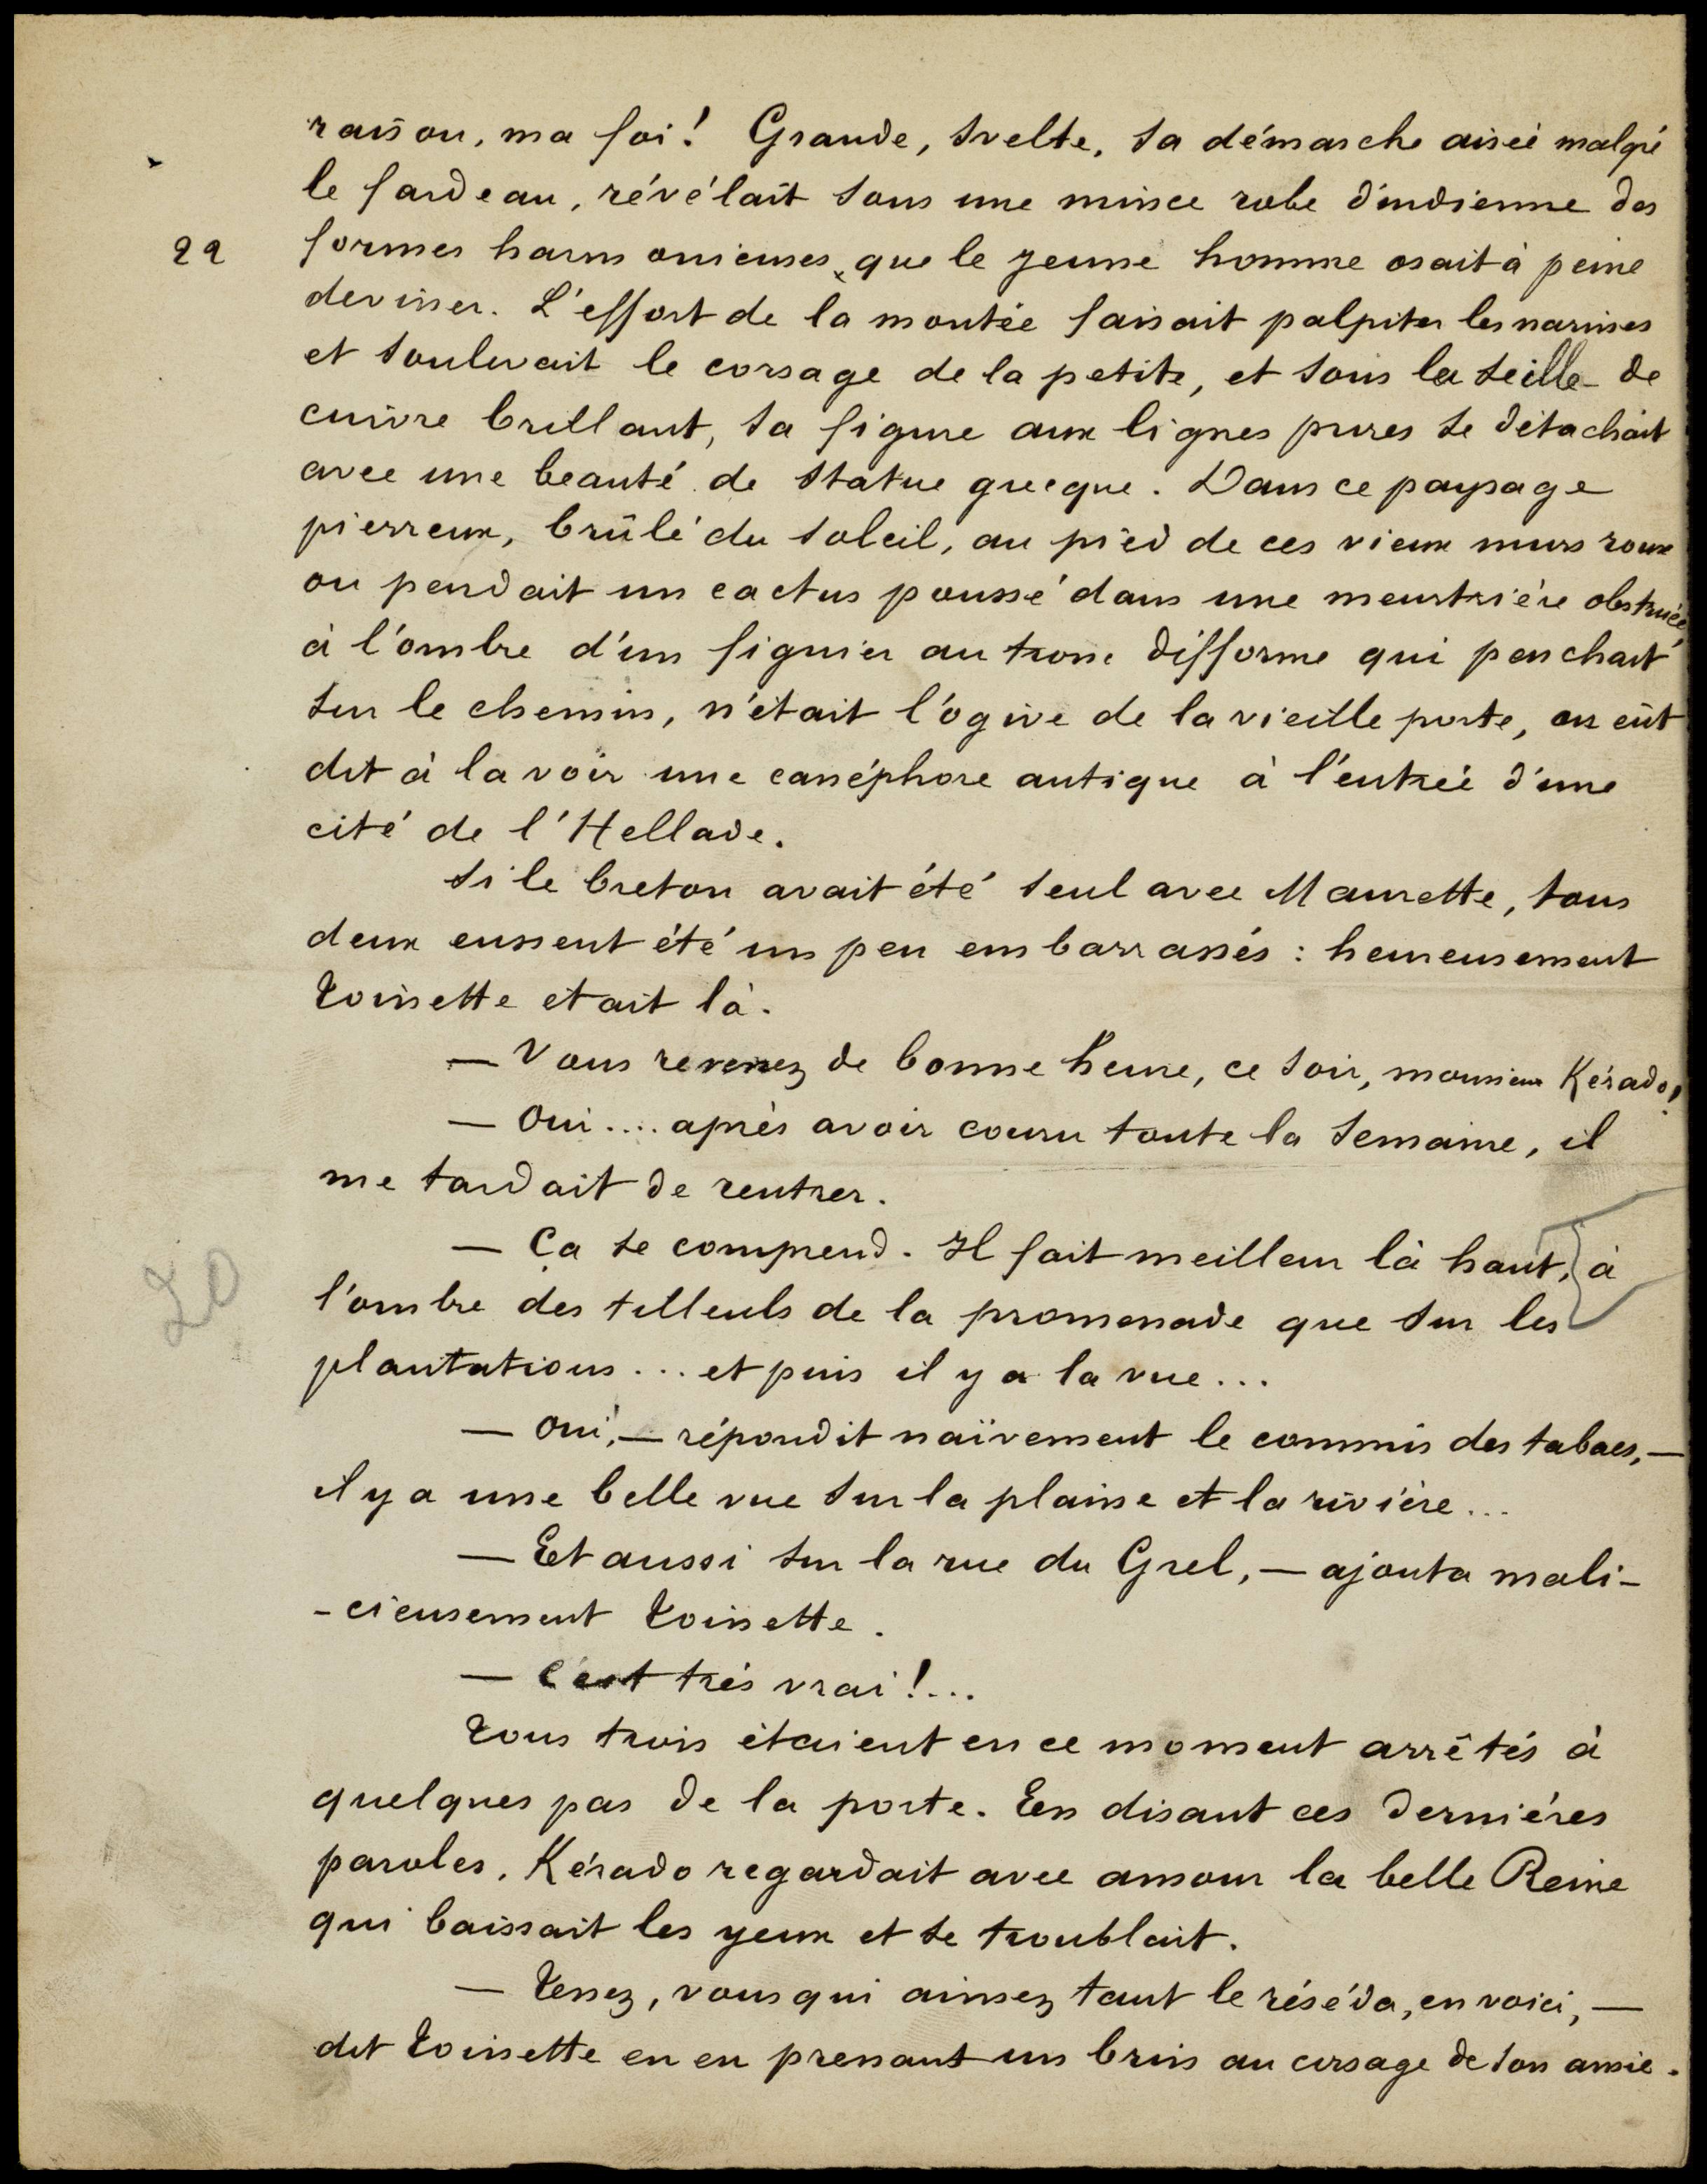 raison, ma foi! Grande, svelte, sa démarche aisée malgré
le fardeau, révélait sous une mince robe d'indienne des
22
formes harmonieuses que le jeune homme osait à peine
deviner. L'effort de la montée faisait palpiter les narines
et soulevait le corsage de la petite, et sous la seille de
cuivre brillant, sa figure aux lignes pures se détachait
avec une beauté de statue grecque. Dans ce paysage
pierreux, brûlé du soleil, au pied de ces vieux murs roux
ou pendait un cactus poussé dans une meurtrière obstruée,
à l'ombre d'un figuier au tronc difforme qui penchait
sur le chemin, n'était l'ogive de la vieille porte, on eût
dit à la voir une canéphore antique à l'entrée d'une
cité de l'Hellade.
Si le breton avait été seul avec Maurette, tous
deux eussent été un peu embarrassés : heureusement
Toinette etait là.
— Vous revenez de bonne heure, ce soir, monsieur Kérado!
— Oui.... après avoir couru toute la semaine, il
me tardait de rentrer.
— Ça se comprend. Il fait meilleur là haut, à
20
l'ombre des tilleuls de la promenade que sur les
plantations... et puis il y a la vue...
— Oui, — répondit naïvement le commis des tabacs, —
il y a une belle vue sur la plaine et la rivière...
— Et aussi sur la rue du Grel, — ajouta mali-
-cieusement Toinette.
— C'est très vrai!...
Tous trois étaient en ce moment arrêtés à
quelques pas de la porte. En disant ces dernières
paroles, Kérado regardait avec amour la belle Reine
qui baissait les yeux et se troublait.
— Tenez, vous qui aimez tant le réséda, en voici, —
dit Toinette en en prenant un brin au corsage de son amie.